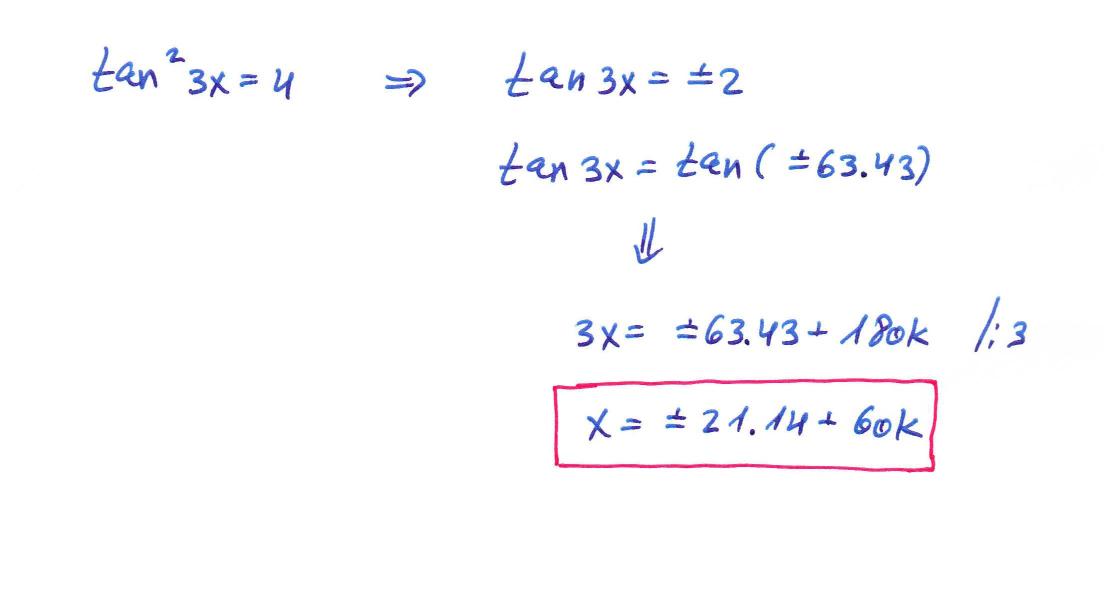 tan² 3x = 4 ⇒ tan 3x = ±2
tan 3x = tan (±63.43)
⇓
3x = ±63.43 + 180k /:3
x = ±21.14 + 60k